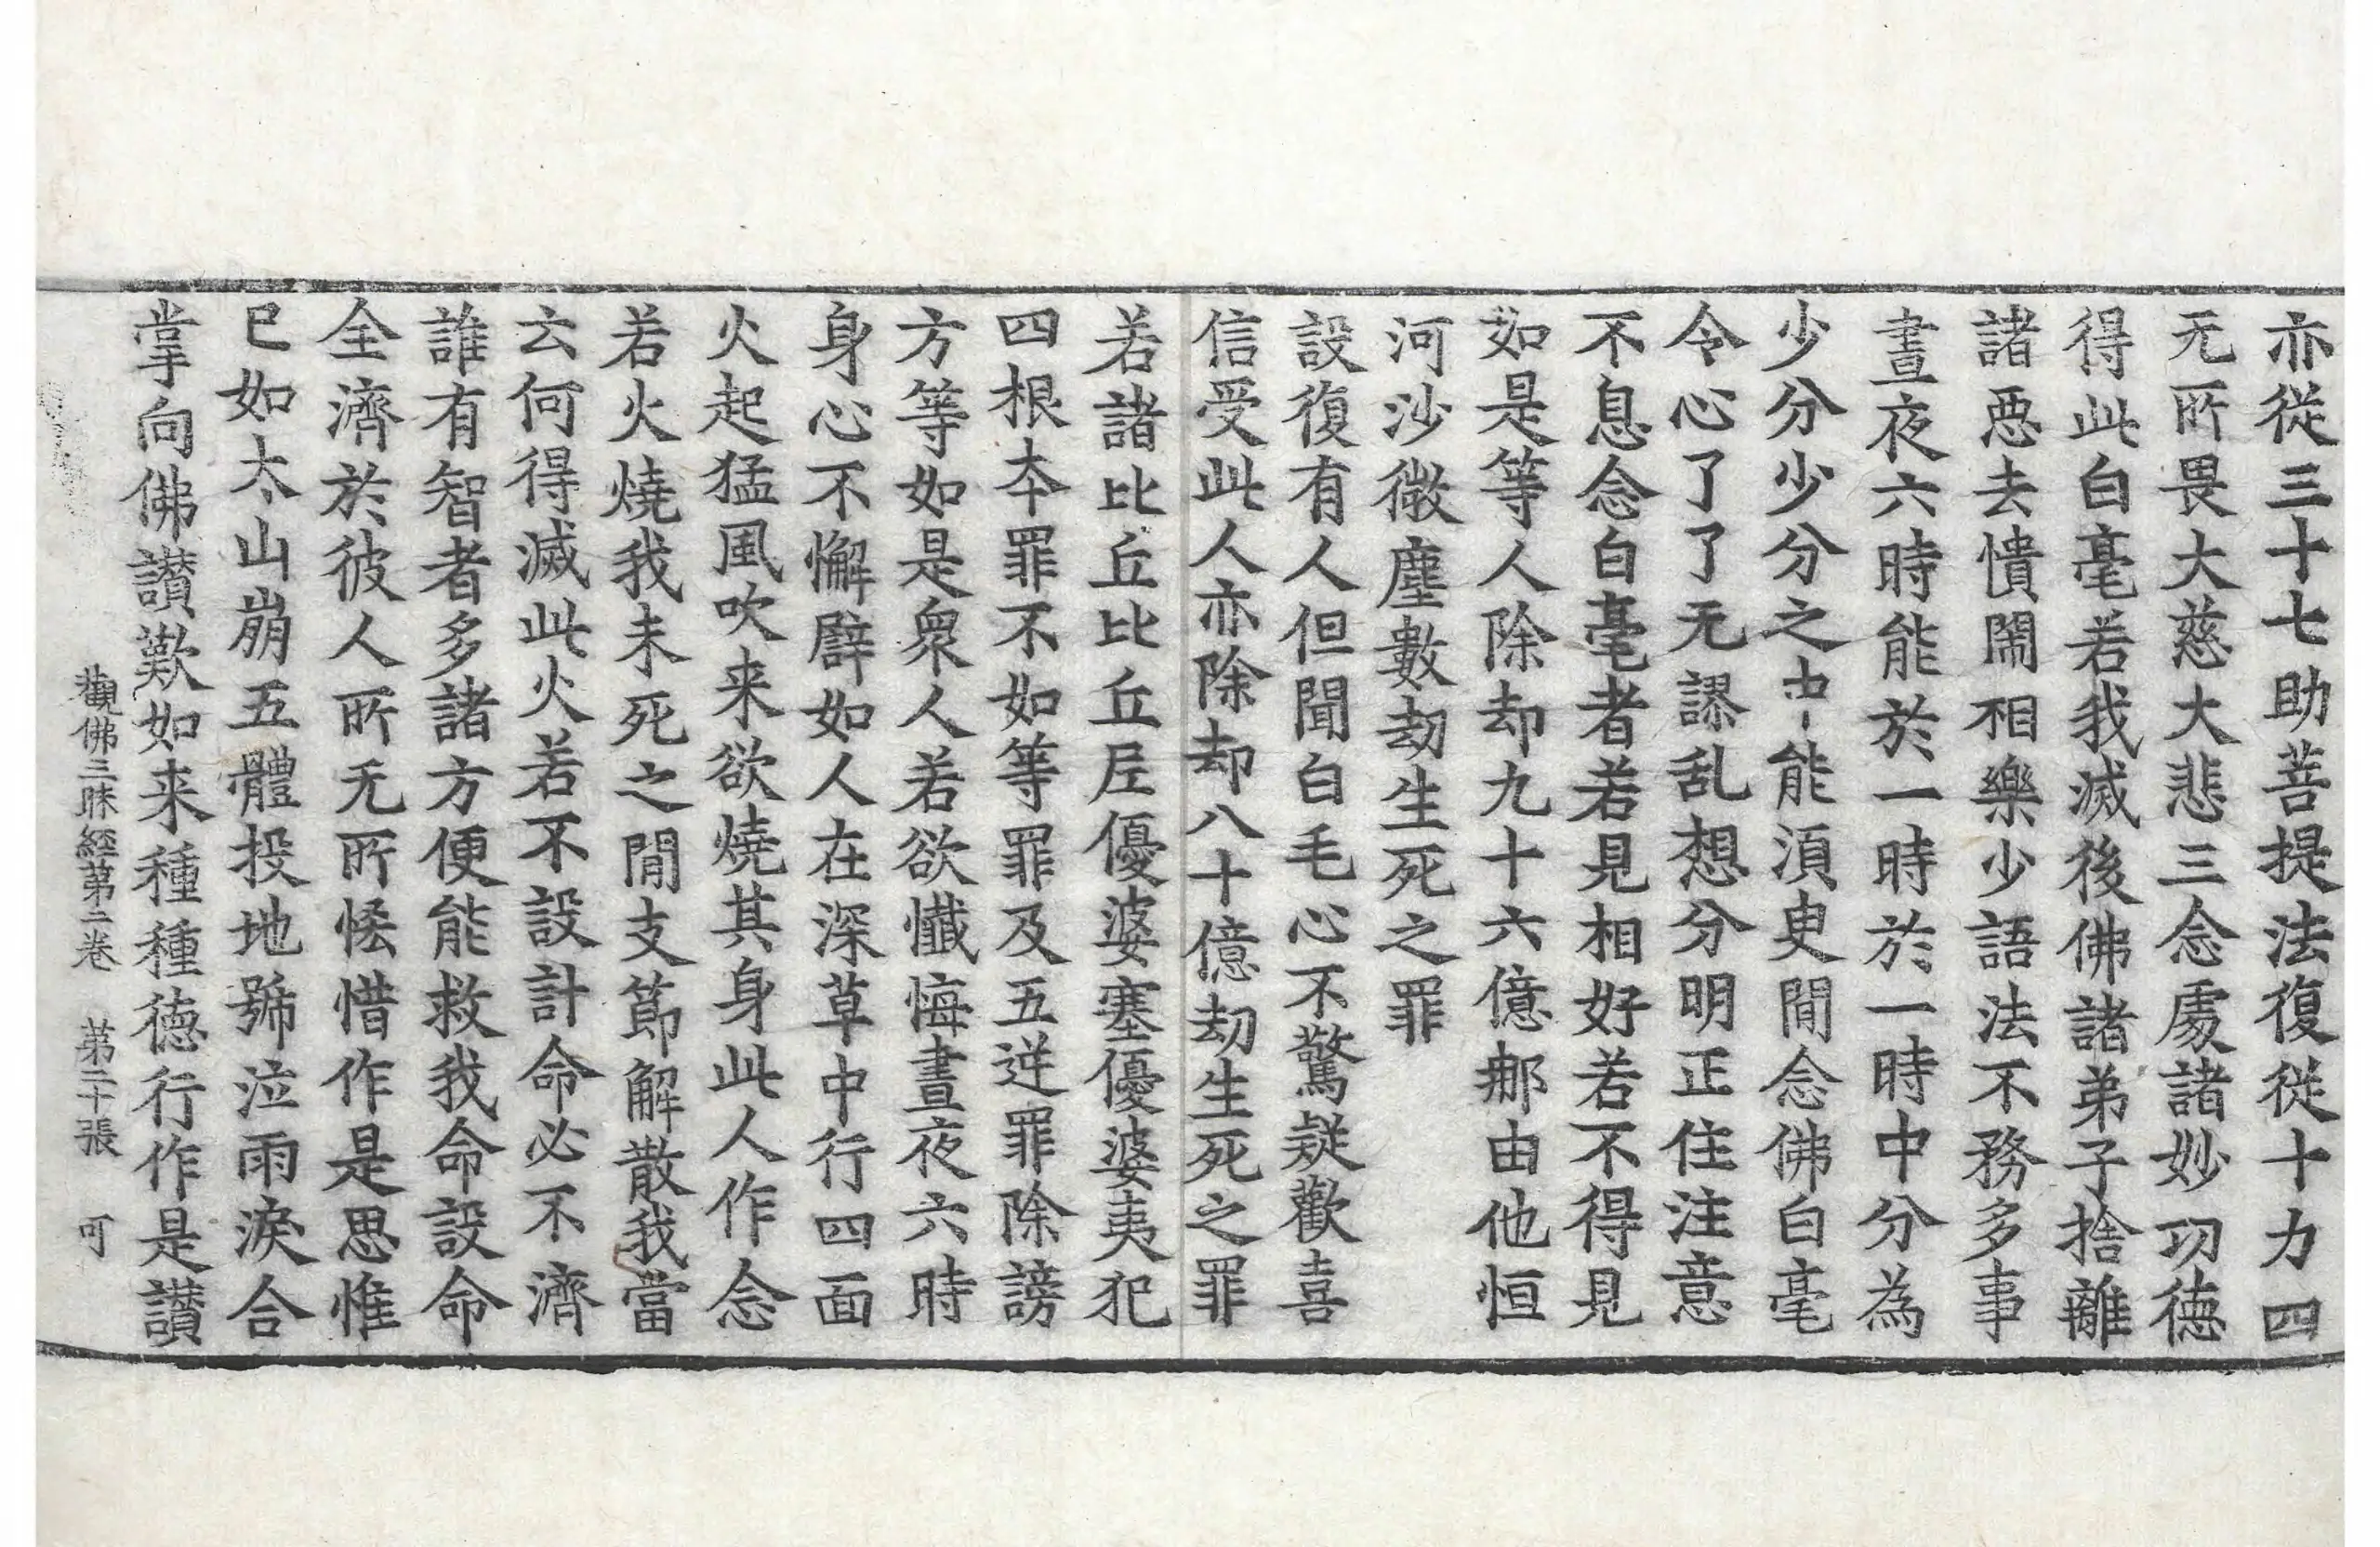 亦從三十七助菩提法復從十力四
无所畏大慈大悲三念處諸妙功德
得此白毫若我滅後佛諸弟子捨離
諸惡去憒閙相樂少語法不務多事
晝夜六時能於一時於一時中分為
少分少分之中能湏臾閒念佛白毫
令心了了无謬乱想分明正住注意
不息念白毫者若見相好若不得見
如是等人除却九十六億那由他恒
河沙微塵數劫生死之罪
設復有人但聞白毛心不驚疑歡喜
信受此人亦除却八十億劫生死之罪
若諸比丘比丘尼優婆塞優婆夷犯
四根本罪不如等罪及五逆罪除謗
方等如是衆人若欲懺悔晝夜六時
身心不懈辟如人在深草中行四面
火起猛風吹来欲燒其身此人作念
若火燒我未死之閒支節解散我當
云何得滅此火若不設計命必不濟
誰有智者多諸方便能救我命設命
全濟於彼人所无所悋惜作是思惟
已如太山崩五體投地號泣雨淚合
掌向佛讃歎如来種種德行作是讃
觀佛三昧經第二卷 第二十張 可